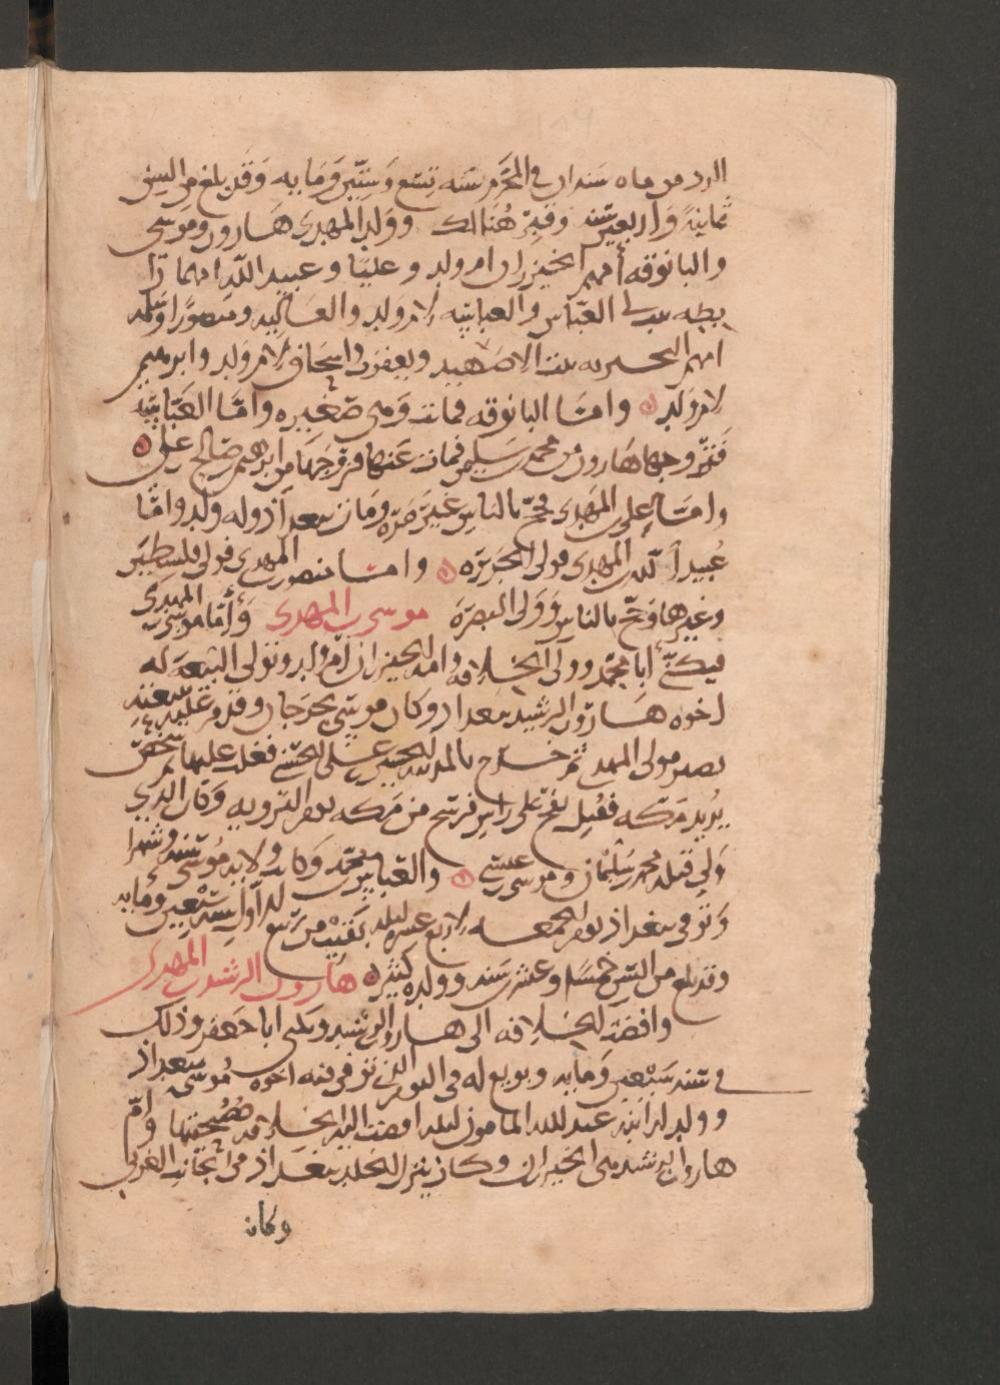 الرد من ماه سندان في المحرم سنه تسع وستين ومايه وقد بلغ من السن
ثمانيةً وأربعين سنه وقبره هنالك وولد المهدي هارون وموسى
والبانوقه أمهم الخيزران ام ولد وعليا وعبيد الله امهما
ريطه بنت ابي العباس والعباسه لام ولد والعاليه ومنصورا وسليمه
امهم البحتريه بنت الاصبهبد ويعقوب واسحاق لام ولد وابرهيم
لام ولد ٥ وامّا البانوقه فماتت وهي صغيره وامّا العباسه
فتزوجها هارون بن محمد بن سليمن فمات عنها فتزوجها من ابرهيم بن صالح بن علي ٥
وامّا علي بن المهدي فحج بالناس غير مرّه ومات ببغداذ وله ولد وامّا
عبيد الله بن المهدي فولي الجزيره ٥ وامّا منصور بن المهدي فولي فلسطين
وغيرها وحج بالناس وولي البصرة موسى بن المهدي وأمّا موسى بن المهدي
فيكنّى أبا محمّد وولي الخلافه وامه الخيزران ام ولد وتولى البيعة له
اخوه هارون الرشيد ببغداد وكان موسى بجرجان وقدم عليه ببغداد
نصير مولى المهدي ثم خرج بالمدينه الحسين بن علي الحسني فغلب عليها ثم شخص
يريد مكّه فقتل بفخ على راس فرسخ من مكه يوم الترويه وكان الذي
ولي قتله محمد بن سليمان وموسى بن عيسى ٥ والعباس بن محمّد وكان ولاية موسى سنه وشهرا
وتوفي ببغداذ يوم الجمعه لاربع عشره ليله بقيت من ربيع الاول سنه سبعين ومايه
وقد بلغ من السن خمسا وعشرين سنه وولده كثير ٥ هارون الرشيد بن المهدي
وافضت الخلافه الى هارون الرشيد ويكنى ابا جعفر وذلك
في سنه سبعين ومايه وبويع له في اليوم الذي توفي فيه اخوه موسى ببغداذ
وولد له ابنه عبد الله المامون ليله افضت اليه الخلافه صبيحتها وأمّ
هارون الرشيد هي الخيزران وكان ينزل الخلد ببغداذ من الجانب الغربي
وكان